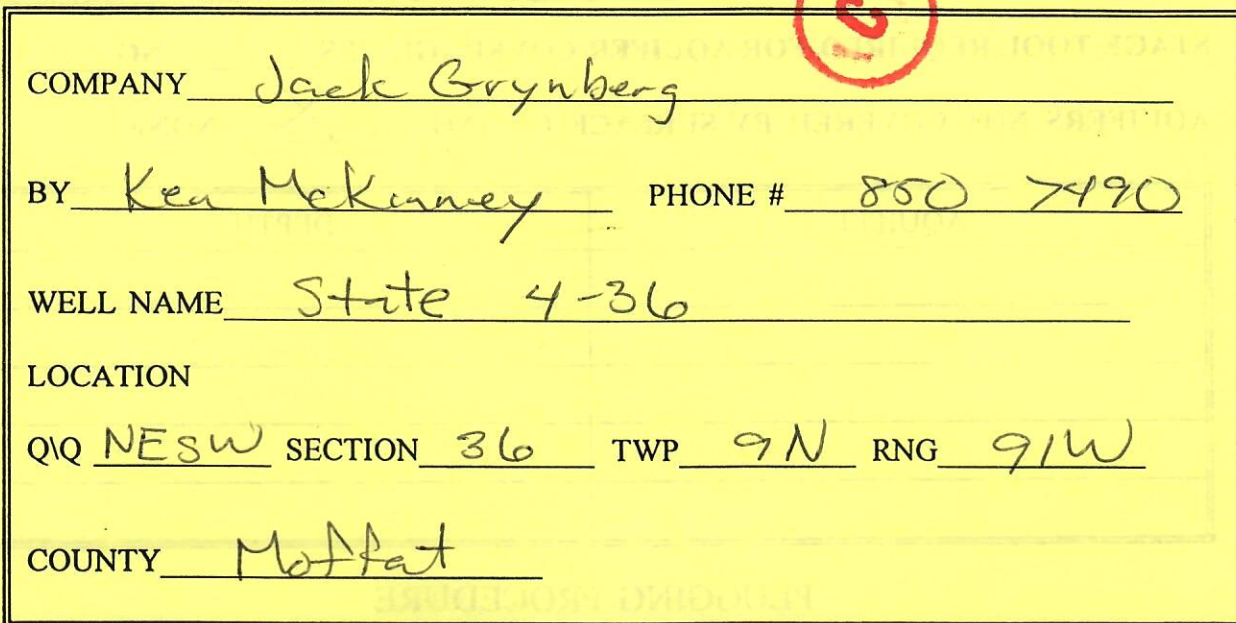 COMPANY Jack Grynberg
BY Ken McKinney PHONE # 850 7490
WELL NAME State 4-36
LOCATION
Q\Q NESW SECTION 36 TWP 9N RNG 91W
COUNTY Moffat
PLUGGING PROCEDURE